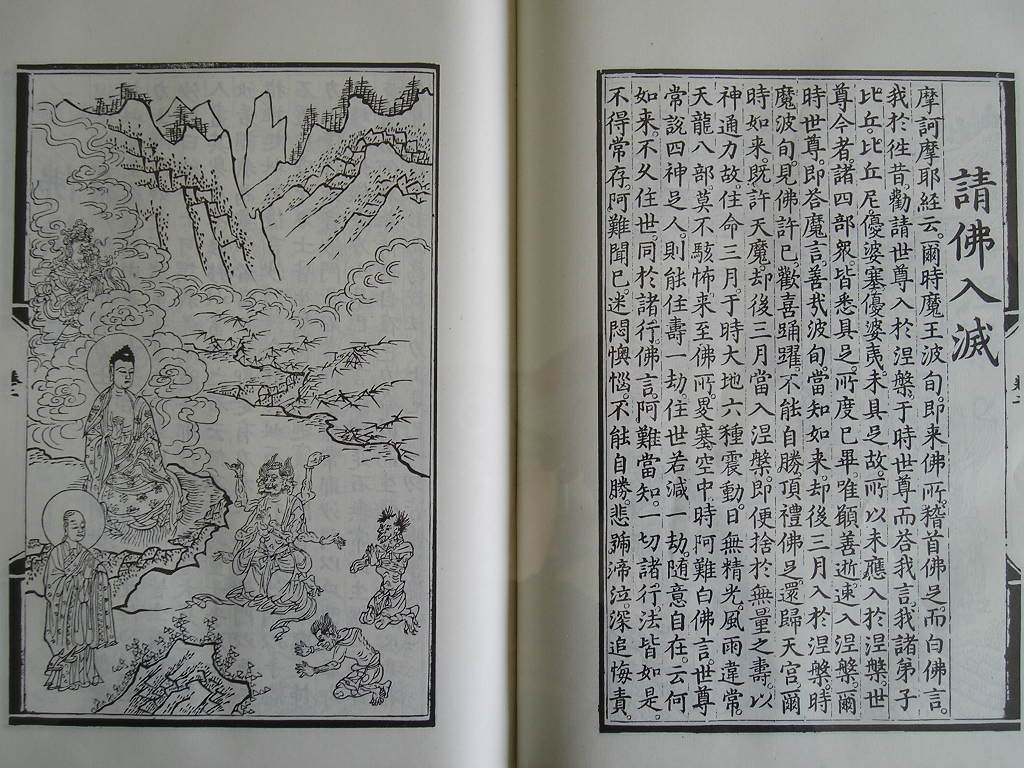 請佛入滅
摩訶摩耶経云。爾時魔王波旬。即来佛所。稽首佛足。而白佛言。
我於徃昔。勸請世尊入於涅槃。于時世尊而荅我言。我諸弟子
比丘。比丘尼。優婆塞。優婆夷。未具足故。所以未應入於涅槃。世
尊今者。諸四部衆皆悉具足。所度已畢。唯願善逝速入涅槃。爾
時世尊。即荅魔言。善哉波旬。當知如来。却後三月入於涅槃。時
魔波旬。見佛許已。歡喜踊躍。不能自勝。頂禮佛足。還歸天宮。爾
時如来。既許天魔。却後三月當入涅槃。即便捨於無量之壽。以
神通力故。住命三月。于時大地六種震動。日無精光。風雨違常。
天龍八部莫不駭怖。来至佛所。畟塞空中。時阿難白佛言。世尊
常說四神足人。則能住壽一劫。住世若減一劫。随意自在。云何
如来。不久住世。同於諸行。佛言。阿難當知。一切諸行。法皆如是。
不得常存。阿難聞已。迷悶懊惱。不能自勝。悲號涕泣。深追悔責。